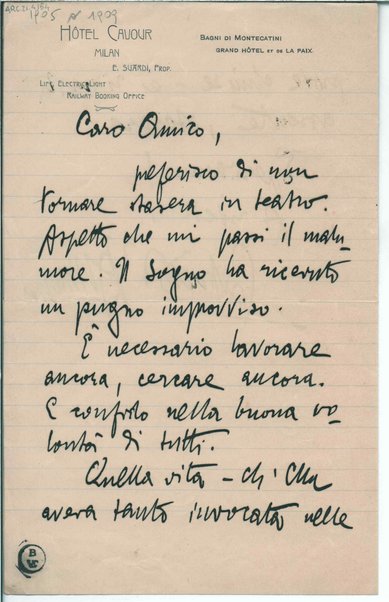 ARC.21.4/54
1905 o 1909
HÔTEL CAVOUR
MILAN
E. SUARDI, PROP.
LIFT ELECTRIC LIGHT
RAILWAY BOOKING OFFICE
BAGNI DI MONTECATINI
GRAND HÔTEL ET DE LA PAIX
Caro Amico,
peferisco di non
tornare stasera in teatro.
Aspetto che mi passi il malu-
more. Il Sogno ha ricevuto
un pugno improvviso.
È necessario lavorare
ancora, cercare ancora.
E confido nella buona vo-
lontà di tutti.
Quella vita – ch'Ella
aveva tanto invocata nelle